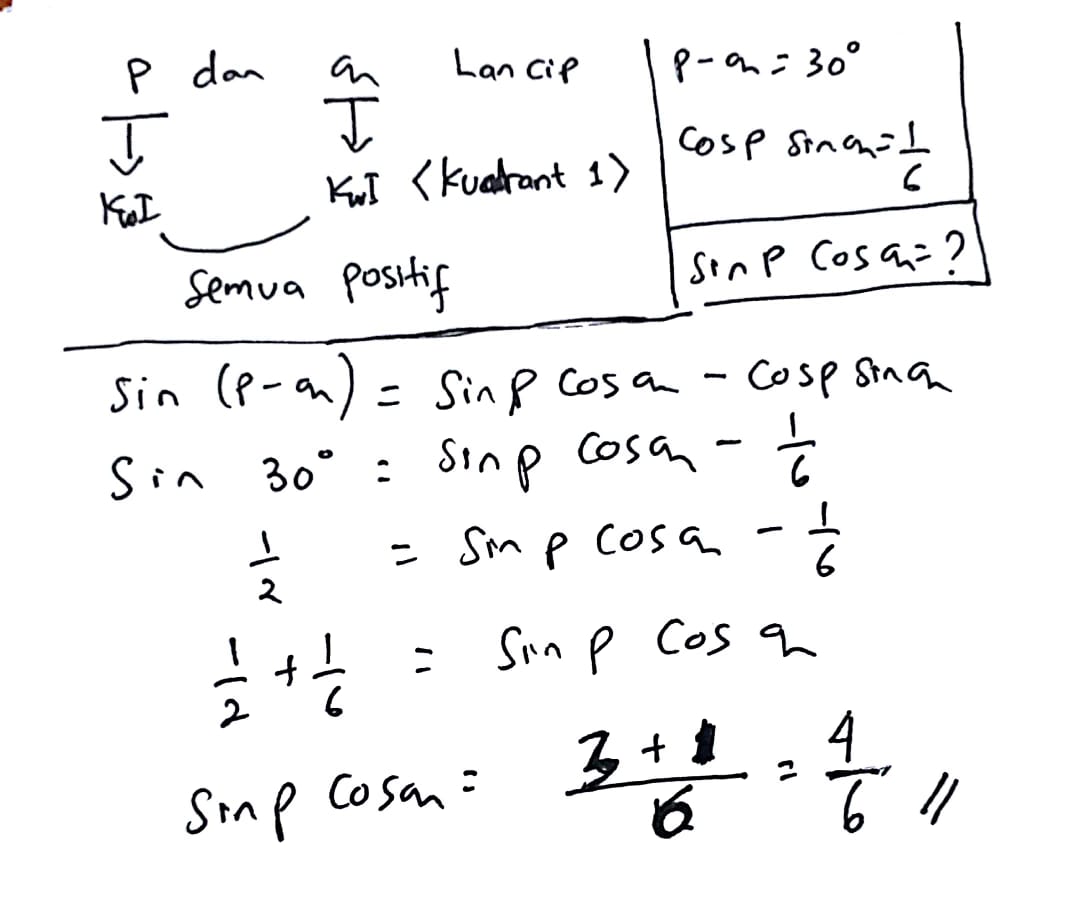 P dan q Lancip
KwI KwI <Kuadrant 1>
Semua Positif
P - q = 30°
Cos P Sin q = 1/6
Sin P Cos q = ?
Sin (P - q) = Sin P Cos q - Cos P Sin q
Sin 30° = Sin p Cos q - 1/6
1/2 = Sin p Cos q - 1/6
1/2 + 1/6 = Sin p Cos q
Sin p Cos q = (3 + 1)/6 = 4/6 //